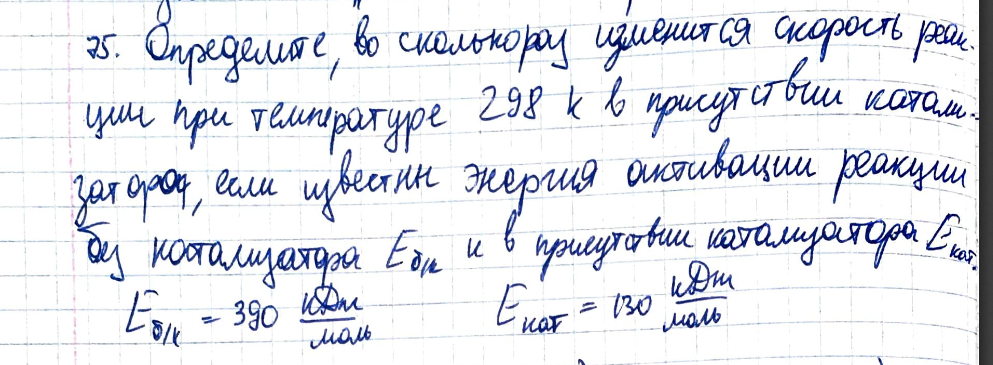 75. Определите, во сколькораз изменится скорость реак-
ции при температуре 298 К в присутствии катали-
затора, если известны энергия активации реакции
без катализатора Eб/к и в присутствии катализатора Eкат.
Eб/к = 390 кДж/моль Eкат = 130 кДж/моль